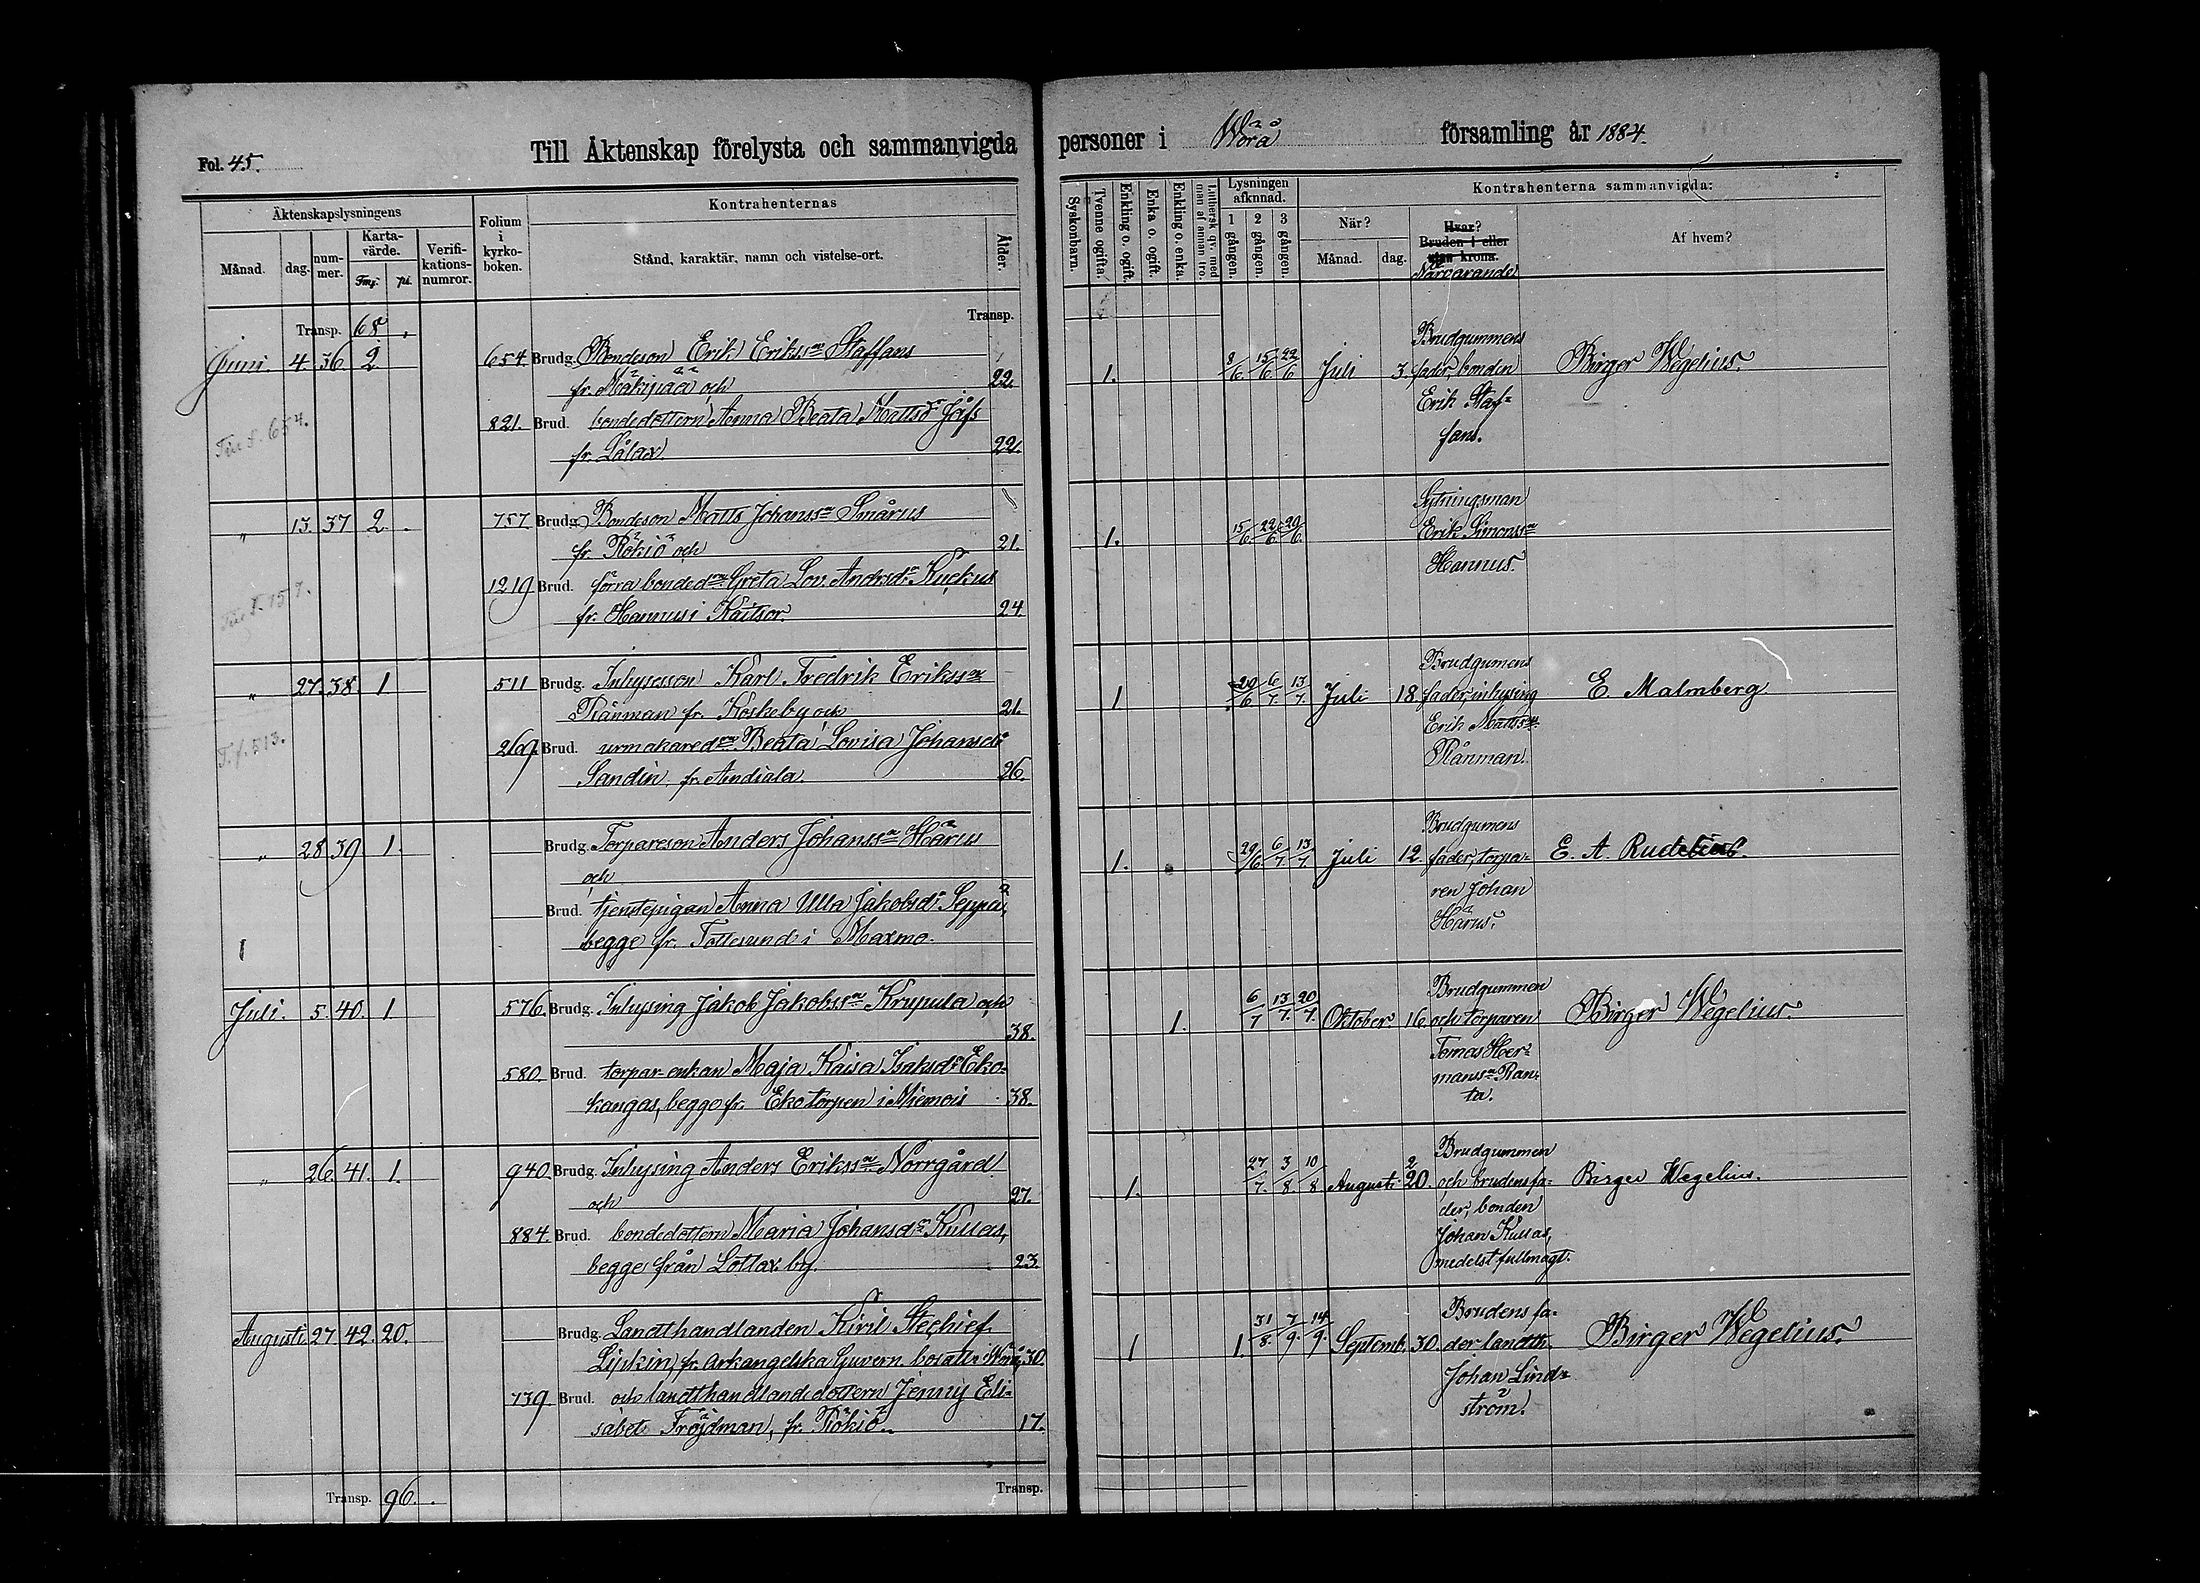 Fol. 45.
Till Äktenskap förelysta och sammanvigda personer i Wörå församling år 1884.
Äktenskapslysningens
Månad. dag. nummer. Kartavärde. Fmf. pi. Verifikationsnumror.
Folium i kyrkoboken.
Kontrahenternas
Stånd, karaktär, namn och vistelse-ort.
Ålder.
Syskonbarn.
Tvenne ogifta.
Enkling o. ogift.
Enka o. ogift.
Enkling o. enka.
Luthersk qv. med man af annan tro.
Lysningen afkunnad.
1 gången. 2 gången. 3 gången.
Kontrahenterna sammanvigda:
När?
Månad. dag.
Hvar?
Bruden i eller
utan krona.
Närvarande
Af hvem?
Transp. 68 Transp.
Juni. 4. 36. 2. 654. Brudg. Bondeson Erik Erikss:n Staffans
fr. Mäkipää och 22.
821. Brud. bondedottern Anna Beata Mattsd:r Jåfs
fr. Lålax. 22.
Till f. 654.
1. 8/6. 15/6 22/6 Juli 3. Birger Wegelius.
Brudgummens
fader, bonden
Erik Staf-
fans.
" 13. 37 2. 757 Brudg. Bondeson Matts Johanss:n Smårus
fr Rökiö och 21.
1219 Brud. förra bonded:rn Greta Lov. Andersd:r Kuckus
fr. Hannus i Kaitsor. 24.
1. 15/6. 22/6. 29/6.
Sytningsman
Erik Simonss:n
Hannus.
" 27. 38. 1 511 Brudg. Inhysesson Karl Fredrik Erikss:n
Rånman fr. Koskeby och 21.
269. Brud. urmakared:rn Beata Lovisa Johansd:r
Sandin fr. Andiala. 26.
T. f. 513.
1 29/6 6/7. 13/7. Juli 18. E. Malmberg
Brudgumens
fader, inhysing
Erik Mattss:n
Rånman.
" 28. 39 1. Brudg. Torpareson Anders Johanss:n Härus
och
Brud. tjenstepigan Anna Ulla Jakobsd:r Seppä,
begge fr. Tottesund i Maxmo.
1
1. 29/6. 6/7 13/7 Juli 12. E. A. Rudelius.
Brudgumens
fader, torpa-
ren Johan
Härus.
Juli. 5. 40. 1 576. Brudg. Inhysing Jakob Jakobss:n Krupula och
38.
580. Brud. torpar-enkan Maja Kaisa Isaksd:r Eko-
kangas, begge fr. Eko torpen i Miemois 38.
1. 6/7 13/7. 20/7. Oktober 16. Birger Wegelius.
Brudgummen
och torparen
Tomas Her-
manss:n Ran-
ta.
" 26. 41. 1. 940. Brudg. Inhysing Anders Erikss:n Norrgård
och 27.
884. Brud. bondedottern Maria Johansd:r Kullas,
begge från Lotlax by. 23.
1. 27/7. 3/8. 10/8 Augusti 20. Birger Wegelius.
Brudgummen
och brudens fa-
der, bonden
Johan Kullas,
medelst fullmagt.
Augusti 27. 42. 20. Brudg. Landthandlanden Kiril
Lipkin, fr. Arkangelska Guvern. bosatt i Wörå, 30.
739. Brud. och landthandlandedottern Jenny Eli-
sabet Fröjdman, fr. Rökiö. 17.
1 1. 31/8. 7/9. 14/9. Septemb. 30. Birger Wegelius.
Brudens fa-
der landth.
Johan Lind-
ström.
Transp. 96. Transp.